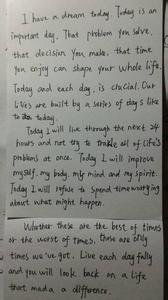 I have a dream today. Today is an
important day. That problem you solve,
that decision you make, that time
you enjoy can shape your whole life.
Today and each day, is crucial. Our
lives are built by a series of days like
to today.
Today I will live through the next 24
hours and not try to tackle all of life's
problems at once. Today I will improve
myself, my body, my mind and my spirit.
Today I will refuse to spend time worrying
about what might happen.
Whether these are the best of times
or the worst of times. These are only
times we've got. Live each day fully
and you will look back on a life
that made a difference.